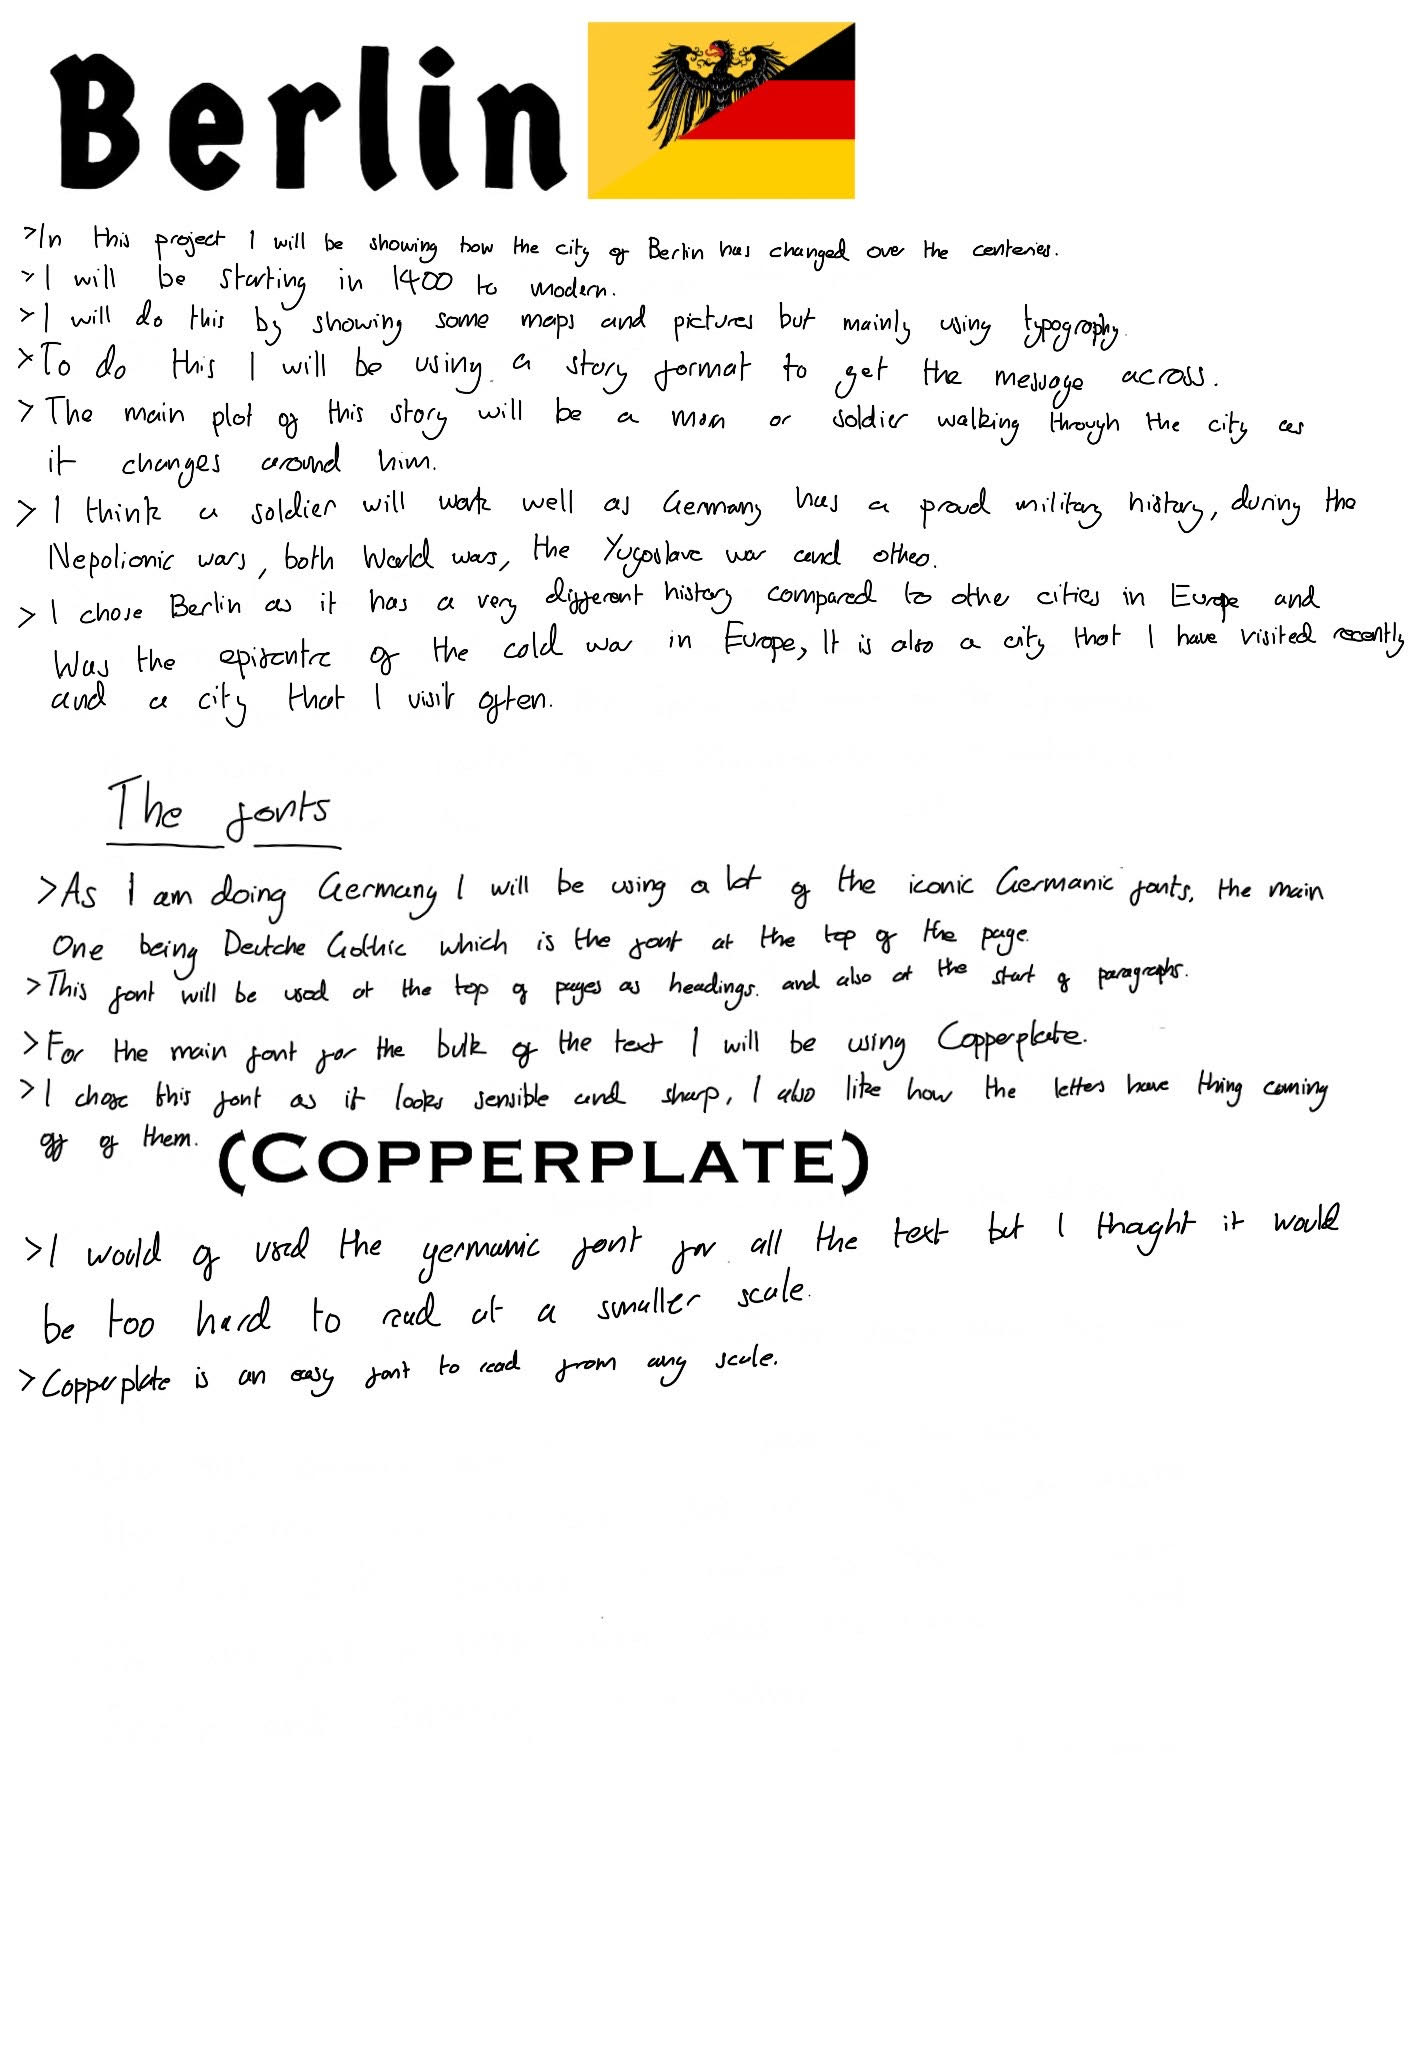 Berlin
>In this project I will be showing how the city of Berlin has changed over the centeries.
>I will be starting in 1400 to modern.
>I will do this by showing some maps and pictures but mainly using typography.
>To do this I will be using a story format to get the message across.
>The main plot of this story will be a man or soldier walking through the city as
it changes around him.
>I think a soldier will work well as Germany has a proud military history, during the
Nepolionic wars, both World wars, the Yugoslave war and others.
>I chose Berlin as it has a very different history compared to other cities in Europe and
Was the episentre of the cold war in Europe, It is also a city that I have visited recently
and a city that I visit often.
The fonts
>As I am doing Germany I will be using a lot of the iconic Germanic fonts, the main
One being Deutche Gothic which is the font at the top of the page.
>This font will be used at the top of pages as headings. and also at the start of paragraphs.
>For the main font for the bulk of the text I will be using Copperplate.
>I chose this font as it looks sensible and sharp, I also like how the letters have thing coming
off of them. (COPPERPLATE)
>I would of used the germanic font for all the text but I thaght it would
be too hard to read at a smaller scale.
>Copperplate is an easy font to read from any scale.